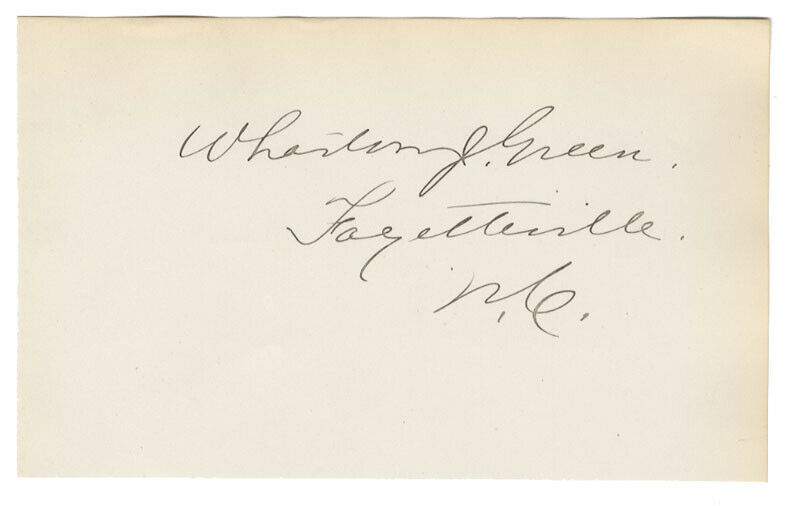 Wharton J. Green.
Fayetteville.
N.C.